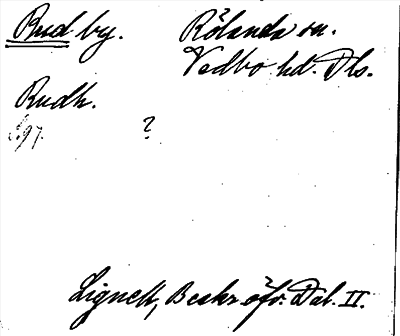 Rud by. Rölanda sn.
Vedbo hd. Dls.
Rudh.
?
Lignell, Beskr. öfv. Dal. II.